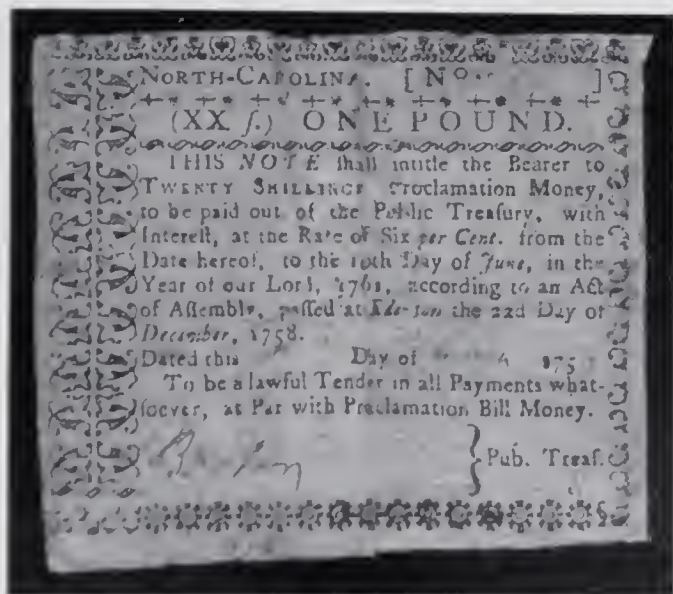 NORTH-CAROLINA. [ No. ]
(XX ſ.) ONE POUND.
THIS NOTE ſhall intitle the Bearer to
TWENTY SHILLINGS Proclamation Money,
to be paid out of the Public Treaſury, with
Intereſt, at the Rate of Six per Cent. from the
Date hereof, to the 10th Day of June, in the
Year of our Lord, 1761, according to an Act
of Aſſembly, paſſed at Edenton the 22d Day of
December, 1758.
Dated this Day of 175
To be a lawful Tender in all Payments what-
ſoever, at Par with Proclamation Bill Money.
Pub. Treaſ.